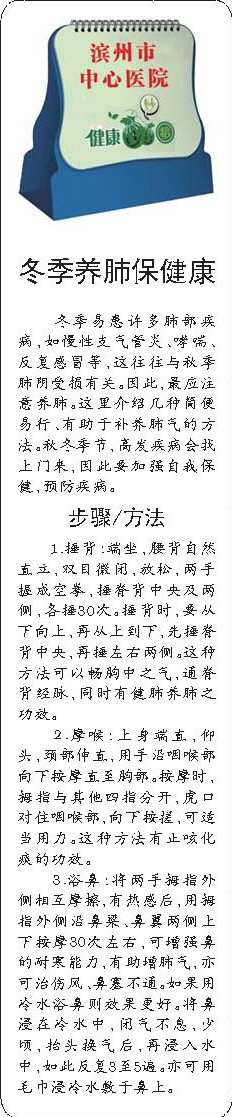 滨州市
中心医院
健康
冬季养肺保健康
冬季易患许多肺部疾
病,如慢性支气管炎、哮喘、
反复感冒等,这往往与秋季
肺阴受损有关。因此,最应注
意养肺。这里介绍几种简便
易行、有助于补养肺气的方
法。秋冬季节,高发疾病会找
上门来,因此要加强自我保
健,预防疾病。
步骤/方法
1.捶背:端坐,腰背自然
直立,双目微闭,放松,两手
握成空拳,捶脊背中央及两
侧,各捶30次。捶背时,要从
下向上,再从上到下,先捶脊
背中央,再捶左右两侧。这种
方法可以畅胸中之气,通脊
背经脉,同时有健肺养肺之
功效。
2.摩喉:上身端直,仰
头,颈部伸直,用手沿咽喉部
向下按摩直至胸部。按摩时,
拇指与其他四指分开,虎口
对住咽喉部,向下按搓,可适
当用力。这种方法有止咳化
痰的功效。
3.浴鼻:将两手拇指外
侧相互摩擦,有热感后,用拇
指外侧沿鼻梁、鼻翼两侧上
下按摩30次左右,可增强鼻
的耐寒能力,有助增肺气,亦
可治伤风、鼻塞不通。如果用
冷水浴鼻则效果更好。将鼻
浸在冷水中,闭气不息,少
顷,抬头换气后,再浸入水
中,如此反复3至5遍。亦可用
毛巾浸冷水敷于鼻上。